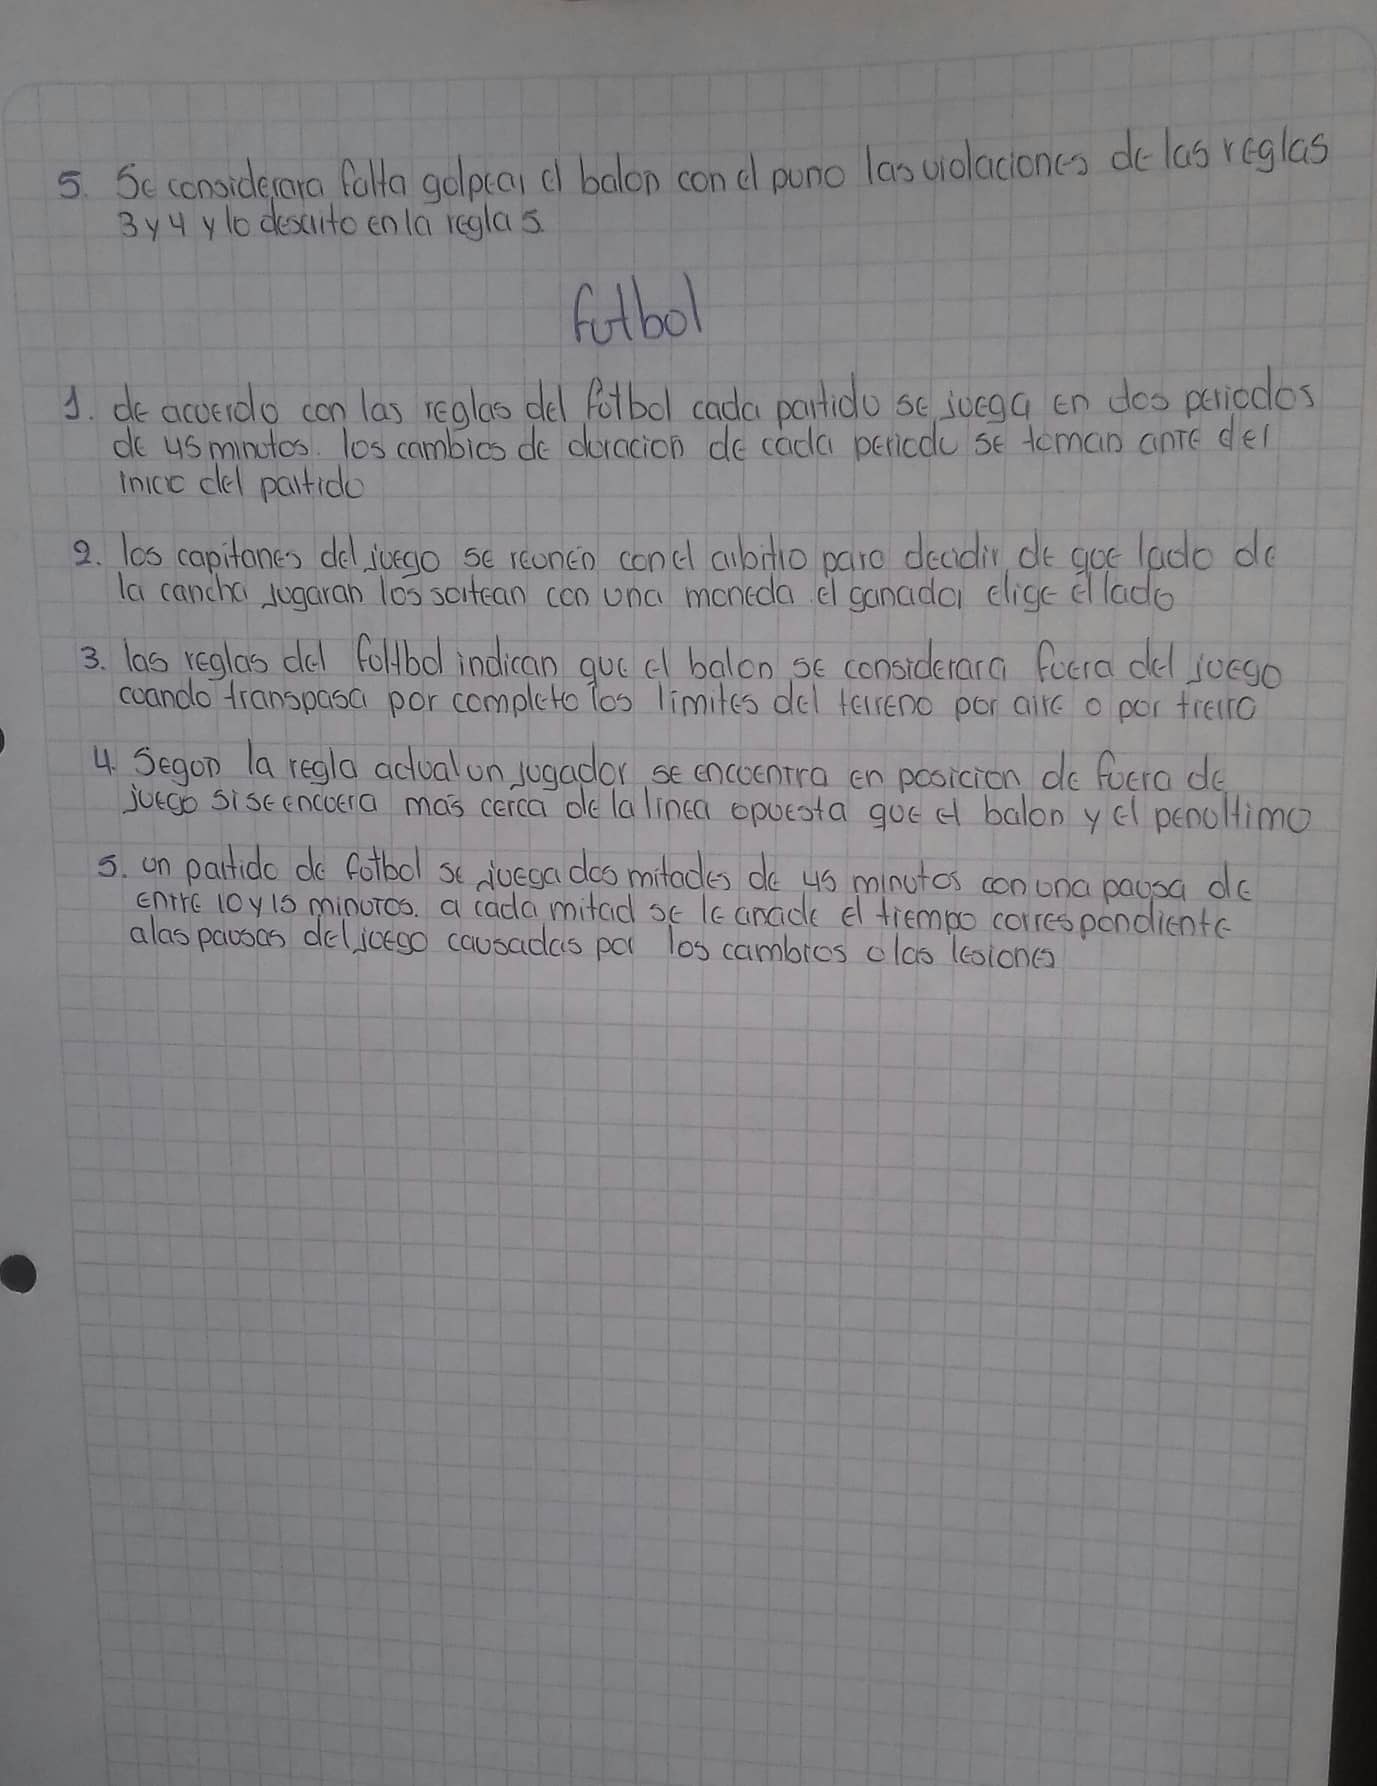 5. Se considerara falta golpear el balon con el puno las violaciones de las reglas
3 y 4 y lo descrito en la regla 5.
futbol
1. de acuerdo con las reglas del futbol cada partido se juega en dos periodos
de 45 minutos. los cambios de duracion de cada periodo se toman ante del
inicio del partido
2. los capitanes del juego se reunen con el arbitro para decidir de que lado de
la cancha jugaran los sortean con una moneda el ganador elige el lado
3. las reglas del futtbol indican que el balon se considerara fuera del juego
cuando transpasa por completo los limites del terreno por aire o por tierro
4. Segun la regla actual un jugador se encuentra en posicion de fuera de
juego si se encuera más cerca de la linea opuesta que el balon y el penultimo
5. un partido de futbol se juega dos mitades de 45 minutos con una pausa de
entre 10 y 15 minutos. a cada mitad se le anade el tiempo correspondiente
a las pausas del juego causadas por los cambios o las lesiones